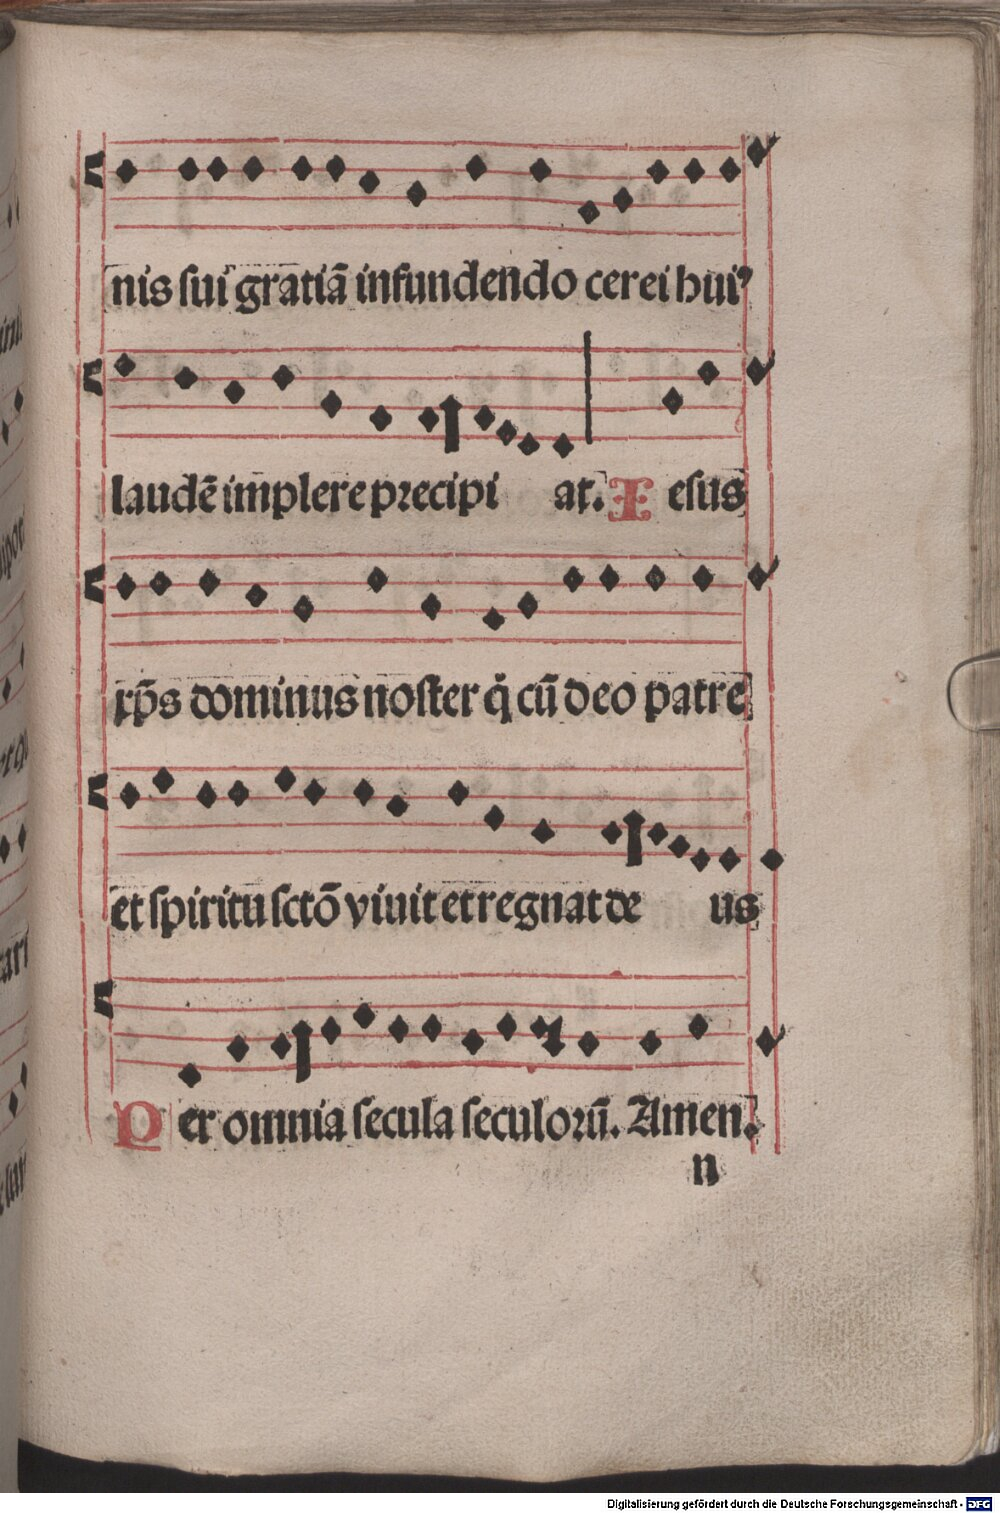 nis sui gratiã infundendo cerei huiꝰ
laudẽ implere precipi at. Iesus
xp̃s dominus noster q̇ cũ deo patre
et spiritu sctõ viuit et regnat de us
Per omnia secula seculorũ. Amen.
n
Digitalisierung gefördert durch die Deutsche Forschungsgemeinschaft - DFG